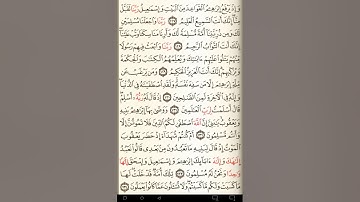 وَإِذْ يَرْفَعُ إِبْرَٰهِـۧمُ ٱلْقَوَاعِدَ مِنَ ٱلْبَيْتِ وَإِسْمَٰعِيلُ رَبَّنَا تَقَبَّلْ
مِنَّآ إِنَّكَ أَنتَ ٱلسَّمِيعُ ٱلْعَلِيمُ ١٢٧ رَبَّنَا وَٱجْعَلْنَا مُسْلِمَيْنِ
لَكَ وَمِن ذُرِّيَّتِنَآ أُمَّةً مُّسْلِمَةً لَّكَ وَأَرِنَا مَنَاسِكَنَا وَتُبْ عَلَيْنَآ
إِنَّكَ أَنتَ ٱلتَّوَّابُ ٱلرَّحِيمُ ١٢٨ رَبَّنَا وَٱبْعَثْ فِيهِمْ رَسُولًا
مِّنْهُمْ يَتْلُوا۟ عَلَيْهِمْ ءَايَٰتِكَ وَيُعَلِّمُهُمُ ٱلْكِتَٰبَ وَٱلْحِكْمَةَ
وَيُزَكِّيهِمْ إِنَّكَ أَنتَ ٱلْعَزِيزُ ٱلْحَكِيمُ ١٢٩ وَمَن يَرْغَبُ عَن
مِّلَّةِ إِبْرَٰهِـۧمَ إِلَّا مَن سَفِهَ نَفْسَهُۥ وَلَقَدِ ٱصْطَفَيْنَٰهُ فِى ٱلدُّنْيَا
وَإِنَّهُۥ فِى ٱلْءَاخِرَةِ لَمِنَ ٱلصَّٰلِحِينَ ١٣٠ إِذْ قَالَ لَهُۥ رَبُّهُۥٓ أَسْلِمْ
قَالَ أَسْلَمْتُ لِرَبِّ ٱلْعَٰلَمِينَ ١٣١ وَوَصَّىٰ بِهَآ إِبْرَٰهِـۧمُ بَنِيهِ
وَيَعْقُوبُ يَٰبَنِىَّ إِنَّ ٱللَّهَ ٱصْطَفَىٰ لَكُمُ ٱلدِّينَ فَلَا تَمُوتُنَّ إِلَّا
وَأَنتُم مُّسْلِمُونَ ١٣٢ أَمْ كُنتُمْ شُهَدَآءَ إِذْ حَضَرَ يَعْقُوبَ
ٱلْمَوْتُ إِذْ قَالَ لِبَنِيهِ مَا تَعْبُدُونَ مِنۢ بَعْدِى قَالُوا۟ نَعْبُدُ
إِلَٰهَكَ وَإِلَٰهَ ءَابَآئِكَ إِبْرَٰهِـۧمَ وَإِسْمَٰعِيلَ وَإِسْحَٰقَ إِلَٰهًا
وَٰحِدًا وَنَحْنُ لَهُۥ مُسْلِمُونَ ١٣٣ تِلْكَ أُمَّةٌ قَدْ خَلَتْ لَهَا
مَا كَسَبَتْ وَلَكُم مَّا كَسَبْتُمْ وَلَا تُسْـَٔلُونَ عَمَّا كَانُوا۟ يَعْمَلُونَ ١٣٤